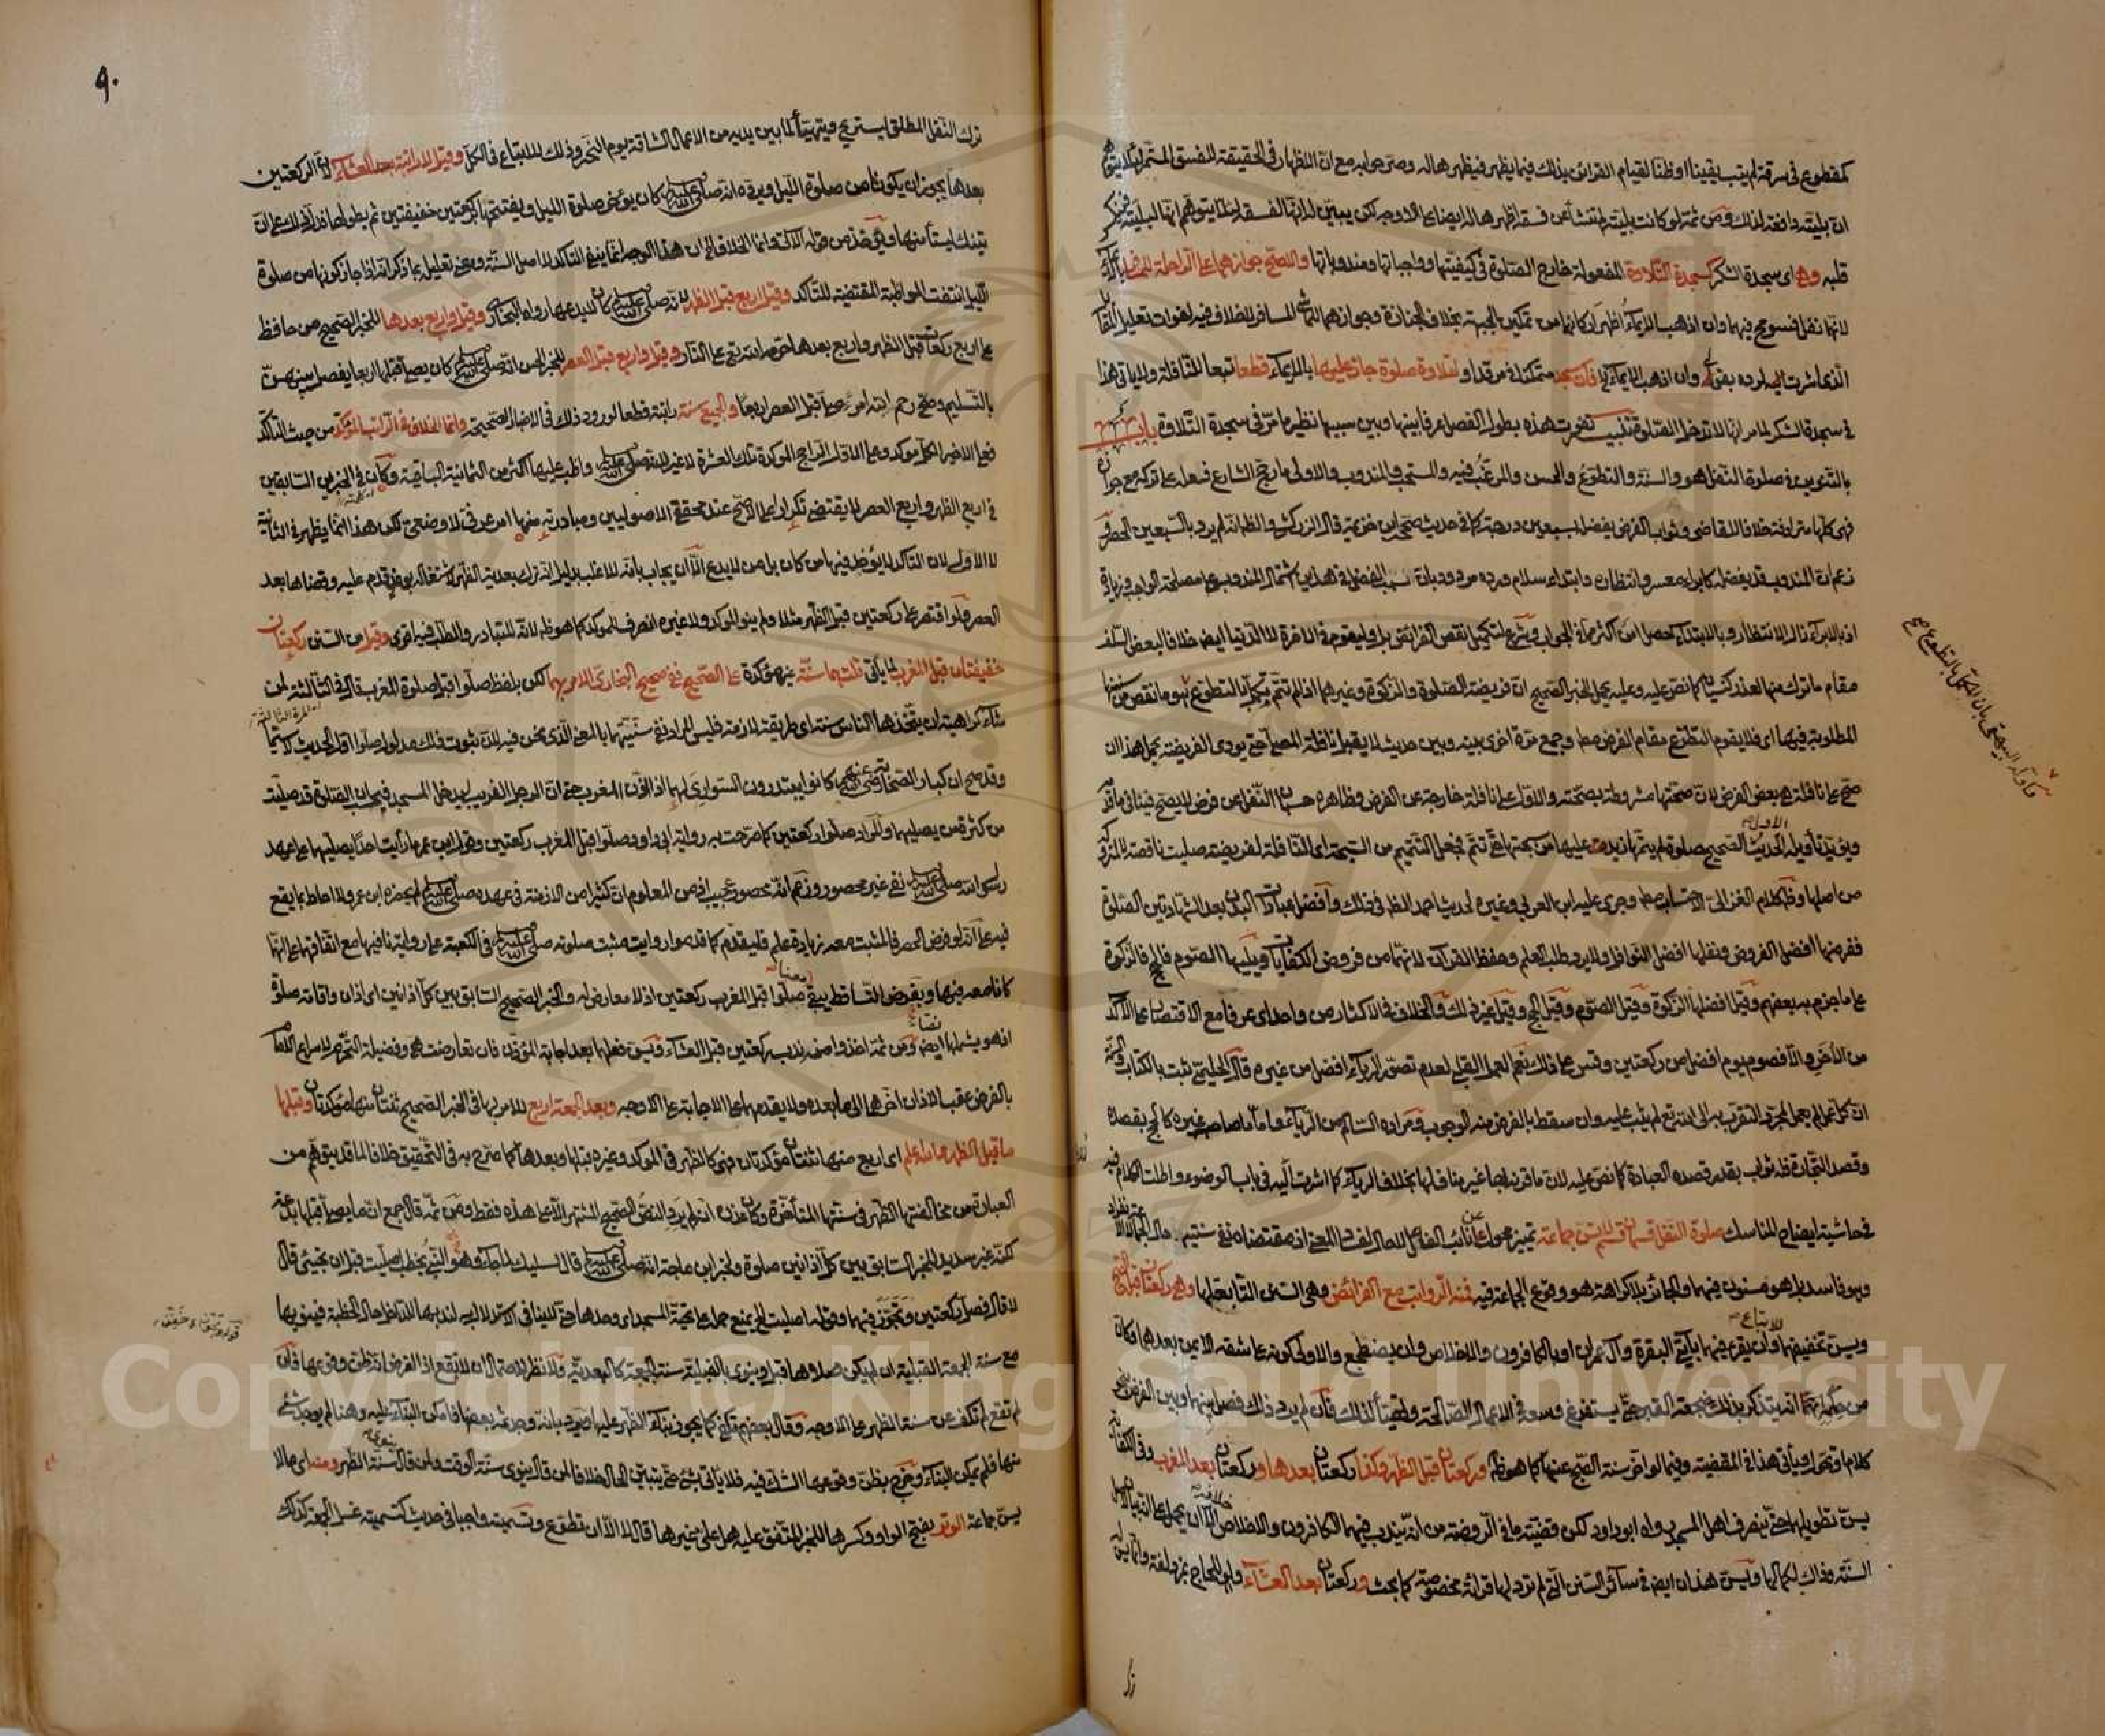 كمقطوع في سرقة لم يتب يقينا او ظنا لقيام القرائن بذلك فيما يظهر فيظهرها له وصرحوا به مع ان اظهار في الحقيقة للفسق المستمر لئلا يتوهم
ان بليته دافعة لذلك ومن ثمة لو كانت بليته لم تنشأ عن فسقه اظهرها له ايضا على الاوجه لكن يبين له انها لفسقه لئلا يتوهم انها لبليته فينكسر
قلبه وهي اى سجدة الشكر كسجدة التلاوة المفعولة خارج الصلوة في كيفيتها وواجباتها ومندوباتها والاصح جوازهما على الراحلة للمسافر بالايماء
لانهما نفل فسومح فيهما وان اذهب الايماء اظهر اركانهما من تمكين الجبهة بخلاف الجنازة وجوازهما للماشي المسافر لا خلاف فيه لفوات تعليل المقابل
الذي اشرت اليه لرده بقولي وان اذهب الايماء الخ فان سجد متمكنا في مرقد او لتلاوة صلوة جاز عليها بالايماء قطعا تبعا للنافلة ولا ياتي هذا
في سجدة الشكر لما مر انها لا تدخل الصلوة تنبيه تفوت هذه بطول الفصل عرفا بينها وبين سببها نظير ما مر في سجدة التلاوة باب
بالتنوين في صلوة النفل هو والسنة والتطوع والحسن والمرغب فيه والمستحب والمندوب والاولى ما رجح الشارع فعله على تركه مع جوازه
فهي كلها مترادفة خلافا للقاضي وثواب الفرض يفضله بسبعين درجة كما في حديث صححه ابن خزيمة قال الزركشي والظاهر انه لم يرد بالسبعين الحصر
زعم ان المندوب قد يفضله كابراء معسر وانظاره وابتداء سلام ورده مردود بان سبب الفضل في هذين اشتمال المندوب على مصلحة الواجب وزيادة
اذ بالابراء زال الانتظار وبالابتداء حصل امن اكثر مما في الجواب وشرع لتكميل نقص الفرائض بل وليقوم في الآخرة لا الدنيا ايضا خلافا لبعض السلف
مقام ما ترك منها لعذر كنسيان كما نص عليه وعليه يحمل الخبر الصحيح ان فريضة الصلوة والزكوة وغيرهما اذا لم تتم تكمل بالتطوع
المطلوبة فيها اى فلا يقوم التطوع مقام الفرض مطلقا وجمع مرة اخرى بينه وبين حديث لا يقبل نافلة المصلي حتى يؤدي الفريضة بحمل هذا ان
صح على نافلة هي بعض الفرض لان صحتها مشروطة بصحته والاول على نافلة خارجة عن الفرض وظاهره حسبان النفل عن فرض لا يصح فينافي ما قدمه
ويؤيد تاويله الحديث الصحيح صلوة لم يتمها زيد عليها من سبحتها حتى تتم فجعل التتميم من السبحة اى النافلة لفريضة صليت ناقصة لا لمتروكة
من اصلها وظاهر كلام الغزالي الاحتساب مطلقا وجرى عليه ابن العربي وغيره لحديث احمد الظاهر في ذلك وافضل عبادات البدن بعد الشهادتين الصلوة
ففرضها افضل الفروض ونفلها افضل النوافل ولا يرد طلب العلم وحفظ القرآن لانهما من فروض الكفايات ويليها الصوم فالحج فالزكوة
على ما جزم به بعضهم وقيل افضلها الزكوة وقيل الصوم وقيل الحج وقيل غير ذلك والخلاف في الاكثار من واحد اى عرفا مع الاقتصار على الآكد
من الآخر والا فصوم يوم افضل من ركعتين وقس على ذلك نعم العمل القلبي لعدم تصور الرياء افضل من غيره قال الحليمي ثبت بالكتاب والسنة
ان كل عمل لم يعمل لمجرد التقرب به الى الله تع لم يثب عليه وان سقط بالفرض منه الوجوب ومراده السالم من الرياء واما ما صاحبه غيره كالحج بقصده
وقصد التجارة فله ثواب بقدر قصده العبادة كما نص عليه لان ما قرنه بها غير مناف لها بخلاف الرياء كما اشرت اليه في باب الوضوء واطلت الكلام فيه
في حاشية ايضاح المناسك صلوة النفل قسمان قسم لا يسن جماعة تمييز محول عن نائب الفاعل لا حال لفساد المعنى اذ مقتضاه نفي سنيته حال الجماعة لا الانفراد
وهو فاسد بل هو مسنون فيهما والجائز بلا كراهة هو وقوع الجماعة فيه فمنه الرواتب مع الفرائض وهي السنن التابعة لها وهي ركعتان قبل الصبح
ويسن تخفيفهما وان يقرء فيهما بآيتي البقرة وآل عمران او بالكافرون والاخلاص وان يضطجع والاولى كونه على شقه الايمن بعدهما وكان
من حكمه انه يتذكر بذلك ضجعة القبر حتى يستفرغ وسعه في الاعمال الصالحة ويتهيأ لذلك فان لم يرد ذلك فصل بينهما وبين الفرض بنحو
كلام او تحول ويأتي هذا في المقضية وفيما لو اخر سنة الصبح عنها كما هو ظاهر وركعتان قبل الظهر وكذا ركعتان بعدها وركعتان بعد المغرب وفي الكفاية
يسن تطويلهما حتى ينصرف اهل المسجد رواه ابو داود لكن قضيته ما في الروضة من انه يندب فيهما الكافرون والاخلاص خلافه الا ان يحمل على انه بيان لاصل
السنة وذاك لكمالها ويسن هذان ايضا في سائر السنن التي لم ترد لها قرائة مخصوصة كما بحث وركعتان بعد العشاء ولو للحاج بمزدلفة وانما يسن
كما اوله البيهقي بان المكمل بالتطوع صح
٩٠
ترك النفل المطلق ليستريح ويتهيأ لما بين يديه من الاعمال الشاقة يوم النحر وذلك للاتباع في الكل وقيل لا راتبة بعد العشاء لان الركعتين
بعدها يجوز ان يكونا من صلوة الليل ويرده انه صلى الله عليه وسلم كان يؤخر صلوة الليل ويفتتحها بركعتين خفيفتين ثم يطولها فدل ذلك على ان
تينك ليستا منها ويؤخذ من قوله الآتي وانما الخلاف الخ ان هذا الوجه انما ينفي التاكد لا اصل السنة ووجه تعليله بما ذكر انه اذا جاز كونها من صلوة
الليل انتفت المواظبة المقتضية للتاكد وقيل اربع قبل الظهر لانه صلى الله عليه وسلم كان لا يدعها رواه البخاري وقيل واربع بعدها للخبر الصحيح من حافظ
على اربع ركعات قبل الظهر واربع بعدها حرمه الله تع على النار وقيل واربع قبل العصر للخبر الحسن انه صلى الله عليه وسلم كان يصلي قبلها اربعا يفصل بينهن
بالتسليم وصح رحم الله امرء صلى قبل العصر اربعا والجميع سنة راتبة قطعا لورود ذلك في الاخبار الصحيحة وانما الخلاف في الراتب المؤكد من حيث التأكد
فعلى الاخير الكل مؤكد وعلى الاول الراجح المؤكد تلك العشرة لا غير لانه صلى الله عليه وسلم واظب عليها اكثر من الثمانية الباقية وكان في الخبرين السابقين
في اربع الظهر واربع العصر لا يقتضي تكرارا على الاصح عند محققي الاصوليين ومبادرته منها امر عرفي لا وضعي لكن هذا انما يظهر في الثانية
لا الاولى لان التاكد لا يؤخذ فيها من كان بل من لا يدع الا ان يجاب بانه للاغلب بدليل انه ترك بعدية الظهر لاشتغاله بوفد قدم عليه وقضاها بعد
العصر ولو اقتصر على ركعتين قبل الظهر مثلا ولم ينو المؤكد ولا غيره انصرف للمؤكد كما هو ظاهر لانه المتبادر والطلب فيه اقوى وقيل من السنن ركعتان
خفيفتان قبل المغرب لما يأتي قلت هما سنة غير مؤكدة على الصحيح ففي صحيح البخاري الامر بهما لكن بلفظ صلوا قبل صلوة المغرب قال في الثالثة لمن
شاء كراهية ان يتخذها الناس سنة اى طريقة لازمة فليس المراد نفي سنيتهما بالمعنى الذي نحن فيه لان ثبوت ذلك مدلول صلوا اول الحديث لا سيما
وقد صح ان كبار الصحابة رضي الله عنهم كانوا يبتدرون السواري لهما اذا اذن المغرب حتى ان الرجل الغريب ليدخل المسجد فيحسب ان الصلوة قد صليت
من كثرة من يصليهما والمراد صلوا ركعتين كما صرحت به رواية ابي داود صلوا قبل المغرب ركعتين وقول ابن عمر ما رأيت احدا يصليهما على عهد
رسول الله صلى الله عليه وسلم نفي غير محصور وزعم انه محصور عجيب اذ من المعلوم ان كثيرا من الازمنة في عهده صلى الله عليه وسلم لم يحضره ابن عمر ولا احاط بما يقع
فيه على انه لو فرض الحصر فالمثبت معه زيادة علم فليقدم كما قدموا رواية مثبت صلوته صلى الله عليه وسلم في الكعبة على رواية نافيها مع اتفاقهما على انهما
كانا معه فيها وبفرض التساقط يبقى صلوا قبل المغرب ركعتين اذ لا معارض له والخبر الصحيح السابق بين كل اذانين اى اذان واقامة صلوة
اذ هو يشملها ايضا ومن ثمة اخذوا منه ندب ركعتين قبل العشاء ويسن فعلهما بعد اجابة المؤذن فان تعارضت هي وفضيلة التحرم لاسراع الامام
بالفرض عقب الاذان اخرهما الى ما بعده ولا يقدمهما على الاجابة على الاوجه وبعد الجمعة اربع للامر بها في الخبر الصحيح ثنتان منها مؤكدتان وقبلها
ما قبل الظهر والله اعلم اى اربع منها ثنتان مؤكدتان فهي كالظهر في المؤكد وغيره قبلها وبعدها كما صرح به في التحقيق خلافا لما قد يتوهم من
العبارة من مخالفتها الظهر في سنتها المتأخرة وكان عذره انه لم يرد النص الصحيح المشتهر الا على هذه فقط ومن ثمة قال جمع ان ما يصلى قبلها بدعة
لكنه غير سديد للخبر السابق بين كل اذانين صلوة ولخبر ابن ماجة انه صلى الله عليه وسلم قال لسليك لما جاء وهو يخطب اصليت قبل ان تجيئ قال
لا قال فصل ركعتين وتجوز فيهما وقوله اصليت الخ يمنع حمله على تحية المسجد اى وحدها حتى لا ينافي الاستدلال به لندبها للداخل حال الخطبة فينويها
مع سنة الجمعة القبلية ان لم يكن صلاها قبل وينوي بالقبلية سنة الجمعة كالبعدية ولا نظر لاحتمال ان لا تقع اذ الفرض انه ظن وقوعها فان
لم تقع لم تكف عن سنة الظهر على الاوجه وقال بعضهم تكفي كما يجوز بناء الظهر عليها ورد بانه وجد ثمة بعضها فامكن البناء عليه وهنا لم يوجد شيء
منها فلم يمكن البناء وخرج بظن وقوعها الشك فيه فلا يأتي بشيء حتى يتبين الحال خلافا لمن قال ينوي سنة الوقت ولمن قال سنة الظهر ومنه اى ما لا
يسن جماعة الوتر بفتح الواو وكسرها للخبر المتفق عليه هل علي غيرها قال لا الا ان تطوع وتسميته واجبا في حديث كتسمية غسل الجمعة كذلك